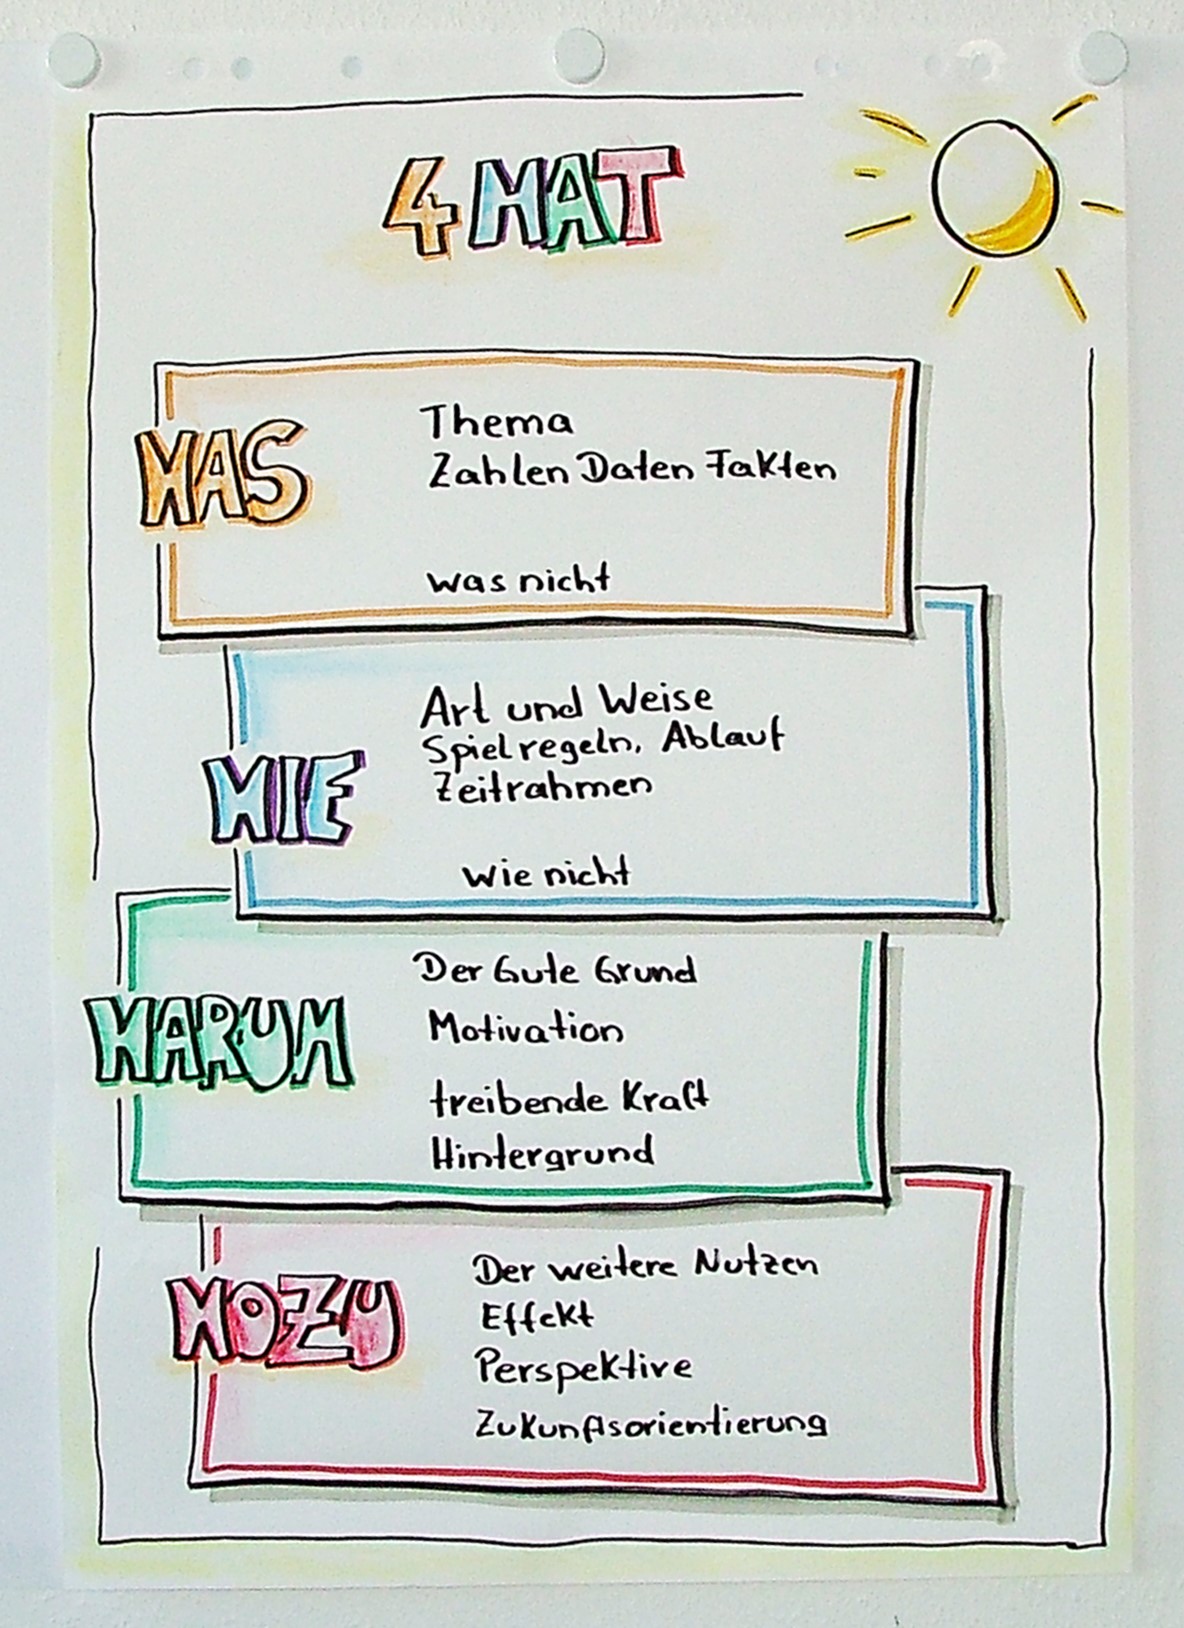 4 MAT
WAS
Thema
Zahlen Daten Fakten
was nicht
WIE
Art und Weise
Spielregeln, Ablauf
Zeitrahmen
Wie nicht
WARUM
Der Gute Grund
Motivation
treibende Kraft
Hintergrund
WOZU
Der weitere Nutzen
Effekt
Perspektive
Zukunftsorientierung